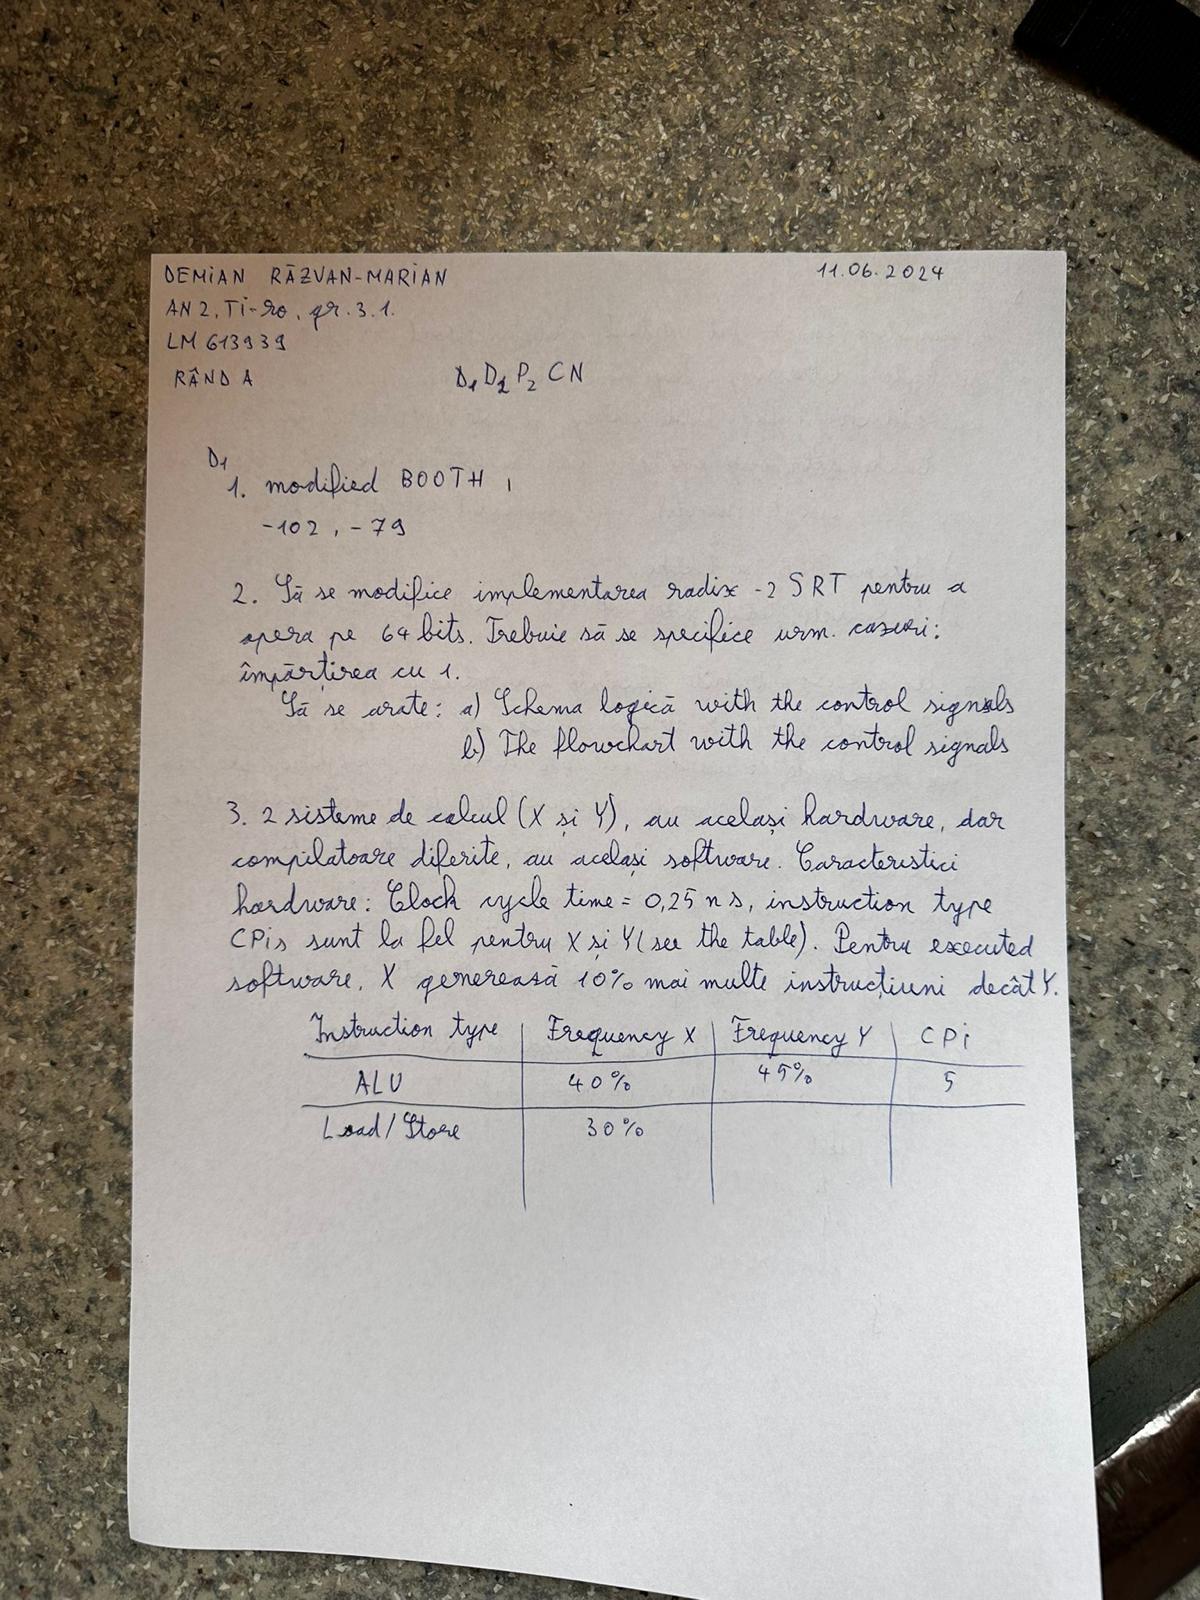 DEMIAN RĂZVAN-MARIAN
11.06.2024
AN 2, Ti-ro, gr. 3.1.
LM 613939
RÂND A
D1 D2 P2 CN
D1
1. modified BOOTH,
-102, -79
2. Să se modifice implementarea radix-2 SRT pentru a
opera pe 64 bits. Trebuie să se specifice urm. cazuri:
împărțirea cu 1.
Să se arate: a) Schema logică with the control signals
b) The flowchart with the control signals
3. 2 sisteme de calcul (X și Y), au același hardware, dar
compilatoare diferite, au același software. Caracteristici
hardware: Clock cycle time = 0,25 ns, instruction type
CPis sunt la fel pentru X și Y (see the table). Pentru executed
software, X generează 10% mai multe instrucțiuni decât Y.
Instruction type Frequency X Frequency Y CPi
ALU 40% 45% 5
Load/Store 30%